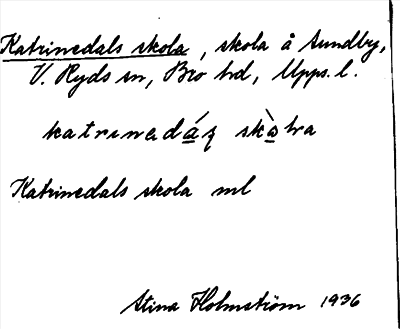 Katrinedals skola, skola å Sundby,
V. Ryds sn, Bro hd, Upps. l.
katrinedáʒ skòlra
Katrinedals skola ml
Stina Holmström 1936